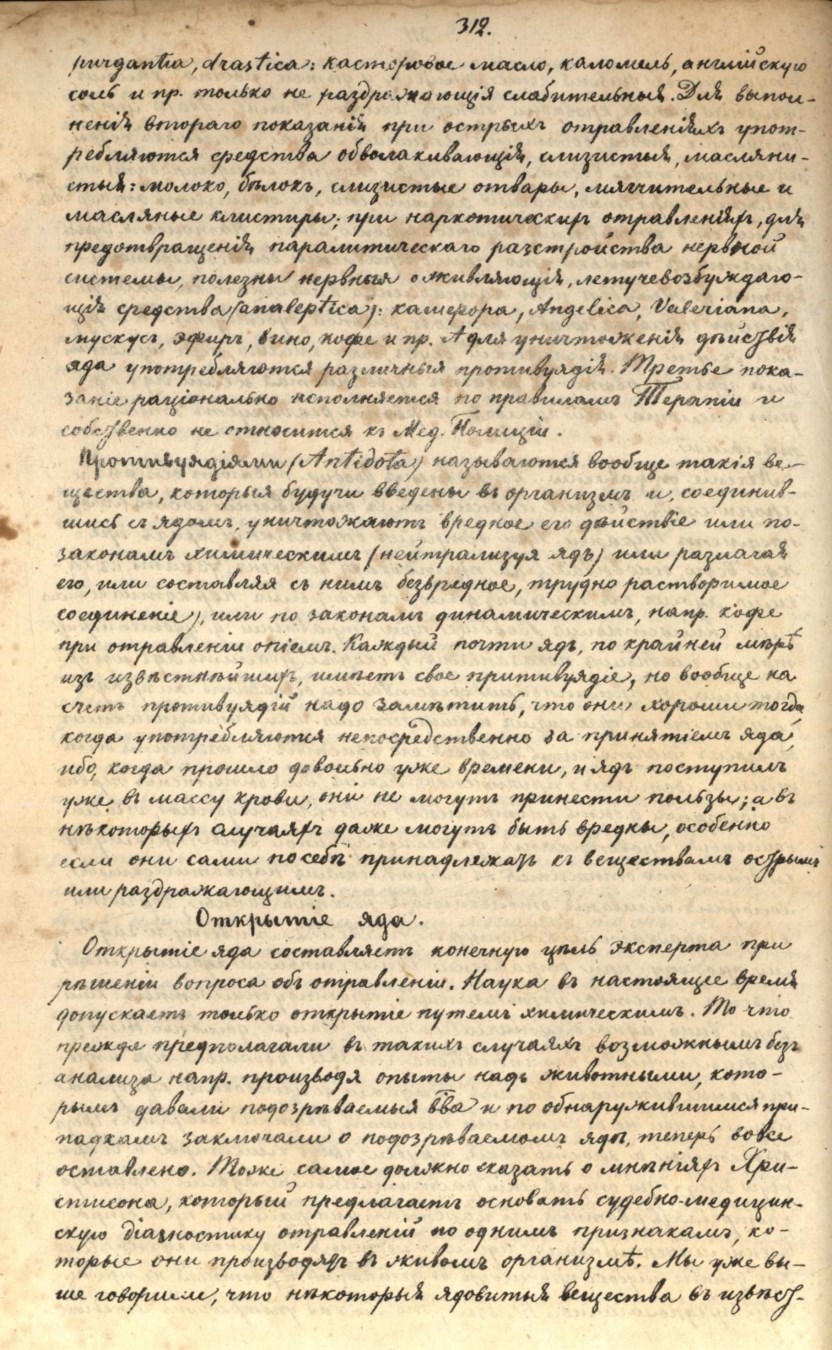 312.
purgantia, drastica: касторовое масло, каломель, англійскую
соль и пр. только не раздражающія слабительныя. Для выпол-
ненія втораго показанія при острыхъ отравленіяхъ упот-
ребляются средства обволакивающія, слизистыя, масляни-
стыя: молоко, бѣлокъ, слизистые отвары, мягчительные и
масляные клистиры; при наркотическихъ отравленіяхъ, для
предотвращенія паралитическаго разстройства нервной
системы, полезны нервныя оживляющія, летучевозбуждаю-
щія средства (analeptica): камфора, Angelica, Valeriana,
мускусъ, эфиръ, вино, кофе и пр. А для уничтоженія дѣйствія
яда употребляются различныя противуядія. Третье пока-
заніе раціонально исполняется по правиламъ Терапіи и
собственно не относится къ Мед. Полиціи.
Противуядіями (Antidota) называются вообще такія ве-
щества, которыя будучи введены въ организмъ и, соединив-
шись съ ядомъ, уничтожаютъ вредное его дѣйствіе или по-
законамъ химическимъ (нейтрализуя ядъ) или разлагая
его, или составляя съ нимъ безвредное, трудно растворимое
соединеніе), или по законамъ динамическимъ, напр. кофе
при отравленіи опіемъ. Каждый почти ядъ, по крайней мѣрѣ
изъ извѣстнѣйшихъ, имѣетъ свое притивуядіе, но вообще на
счетъ противуядій надо замѣтить, что они хороши тогда
когда употребляются непосредственно за принятіемъ яда,
ибо, когда прошло довольно уже времени, и ядъ поступилъ
уже въ массу крови, оні не могутъ принести пользы; а въ
нѣкоторыхъ случаяхъ даже могутъ быть вредны, особенно
если они сами по себѣ принадлежатъ къ веществамъ острымъ
или раздражающимъ.
Открытіе яда.
Открытіе яда составляетъ конечную цѣль эксперта при
рѣшеніи вопроса объ отравленіи. Наука въ настоящее время
допускаетъ только открытіе путемъ химическимъ. То что
прежде предполагали въ такихъ случаяхъ возможнымъ безъ
анализа напр. производя опыты надъ животными, кото-
рымъ давали подозрѣваемыя вва и по обнаружившимся при-
падкамъ заключали о подозрѣваемомъ ядѣ, теперь вовсе
оставлено. Тоже самое должно сказать о мнѣніяхъ Хри-
стисона, который предлагаетъ основать судебно-медицин-
скую діагностику отравленій по однимъ признакамъ, ко-
торые они производятъ въ живомъ организмѣ. Мы уже вы-
ше говорили, что нѣкоторыя ядовитыя вещества въ извѣст-